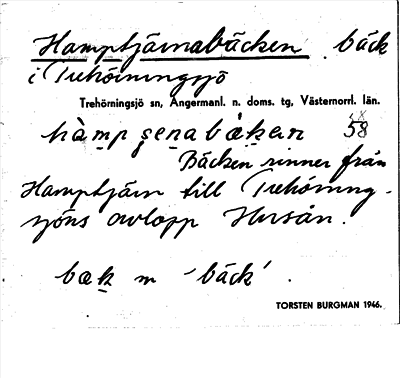 Hamptjärnabäcken bäck
i Trehörningsjö
Trehörningsjö sn, Ångermanl. n. doms. tg, Västernorrl. län.
58
Bäcken rinner från
Hamptjärn till Trehörning-
sjöns avlopp Husån.
bæk m 'bäck'.
TORSTEN BURGMAN 1946.